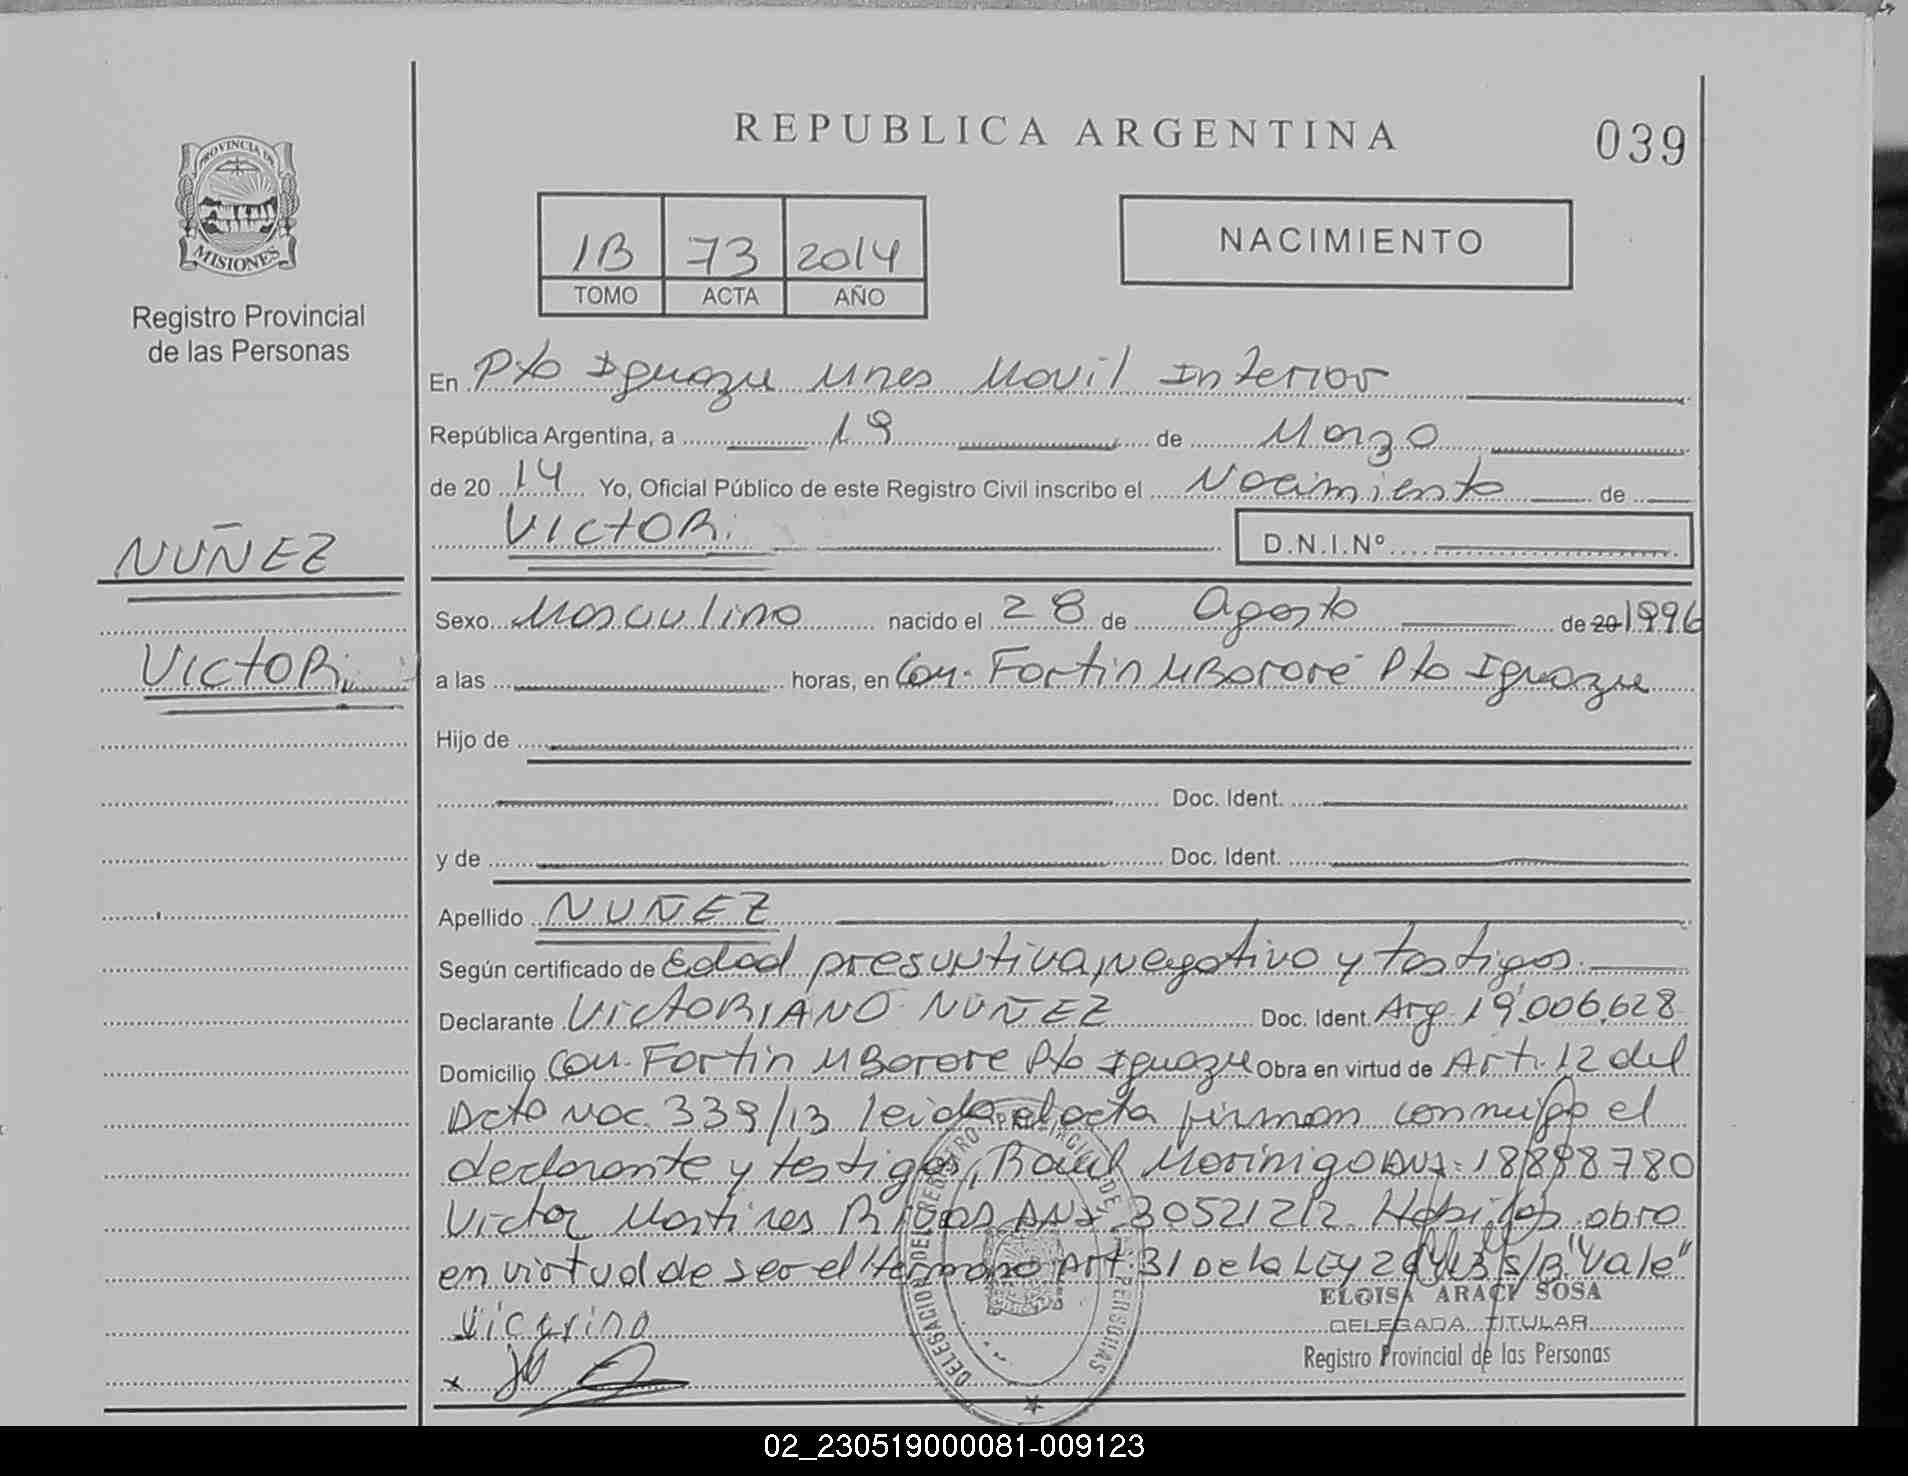 REPUBLICA ARGENTINA
039
PROVINCIA DE
MISIONES
Registro Provincial
de las Personas
1B 73 2014
TOMO ACTA AÑO
NACIMIENTO
En Pto Iguazu Unes Movil Interior
República Argentina, a 19 de Marzo
de 2014 Yo, Oficial Público de este Registro Civil inscribo el Nacimiento de
VICTOR.
D.N.I.Nº
NUÑEZ
VICTOR
Sexo Masculino nacido el 28 de Agosto de 20 1996
a las horas, en Com. Fortin MBororé Pto Iguazu
Hijo de
Doc. Ident.
y de Doc. Ident.
Apellido NUÑEZ
Según certificado de Edad presuntiva, negativo y testigos.
Declarante VICTORIANO NUÑEZ Doc. Ident. Arg. 19.006.628
Domicilio Com. Fortin MBorore Pto Iguazu Obra en virtud de Art. 12 del
Dcto Nac. 339/13 leida el acta firman conmigo el
declarante y testigos, Raul Morinigo DNI: 18898780
Victor Martines DNI 30521212 Habiles obra
en virtud de ser el Hermano Art. 31 De la Ley 26413 S/B "Vale"
ELOISA ARACI SOSA
DELEGADA TITULAR
Registro Provincial de las Personas
DELEGACION DEL REGISTRO PROVINCIAL DE LAS PERSONAS
02_230519000081-009123